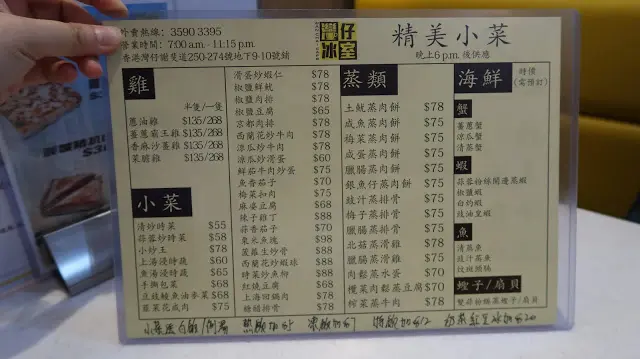 外賣熱線: 3590 3395
營業時間: 7:00 a.m. - 11:15 p.m.
香港灣仔謝斐道250-274號地下9-10號舖
灣仔
冰室
精美小菜
晚上6 p.m. 後供應
雞
半隻/一隻
蔥油雞 $135/268
薑蔥霸王雞 $135/268
香麻沙薑雞 $135/268
菜膽雞 $135/268
小菜
清炒時菜 $55
蒜蓉炒時菜 $58
小炒王 $78
上湯浸時蔬 $60
魚湯浸時蔬 $65
手撕包菜 $68
豆豉鯪魚油麥菜 $68
韮菜花咸肉 $75
滑蛋炒蝦仁 $78
椒鹽鮮魷 $78
椒鹽肉排 $78
椒鹽豆腐 $65
京都肉排 $78
西蘭花炒牛肉 $78
涼瓜炒牛肉 $78
涼瓜炒滑蛋 $60
鮮茄牛肉炒蛋 $75
魚香茄子 $70
梅菜扣肉 $75
麻婆豆腐 $68
辣子雞丁 $88
蒜香茄子 $70
泉水魚塊 $98
菠蘿生炒骨 $88
西蘭花炒蝦球 $88
時菜炒魚柳 $88
紅燒豆腐 $68
上海回鍋肉 $78
糖醋排骨 $78
蒸類
土魷蒸肉餅 $78
咸魚蒸肉餅 $75
梅菜蒸肉餅 $75
咸蛋蒸肉餅 $75
臘腸蒸肉餅 $75
銀魚仔蒸肉餅 $75
豉汁蒸排骨 $75
梅子蒸排骨 $75
臘腸蒸排骨 $75
北菇蒸滑雞 $78
臘腸蒸滑雞 $78
肉鬆蒸水蛋 $70
欖菜肉鬆蒸豆腐 $70
榨菜蒸牛肉 $78
海鮮
時價
(需預訂)
蟹
薑蔥蟹
涼瓜蟹
清蒸蟹
蝦
蒜蓉粉絲開邊蒸蝦
椒鹽蝦
白灼蝦
豉油皇蝦
魚
清蒸魚
豉汁蒸魚
炆斑頭腩
蟶子/扇貝
雙蒜粉絲蒸蟶子/扇貝